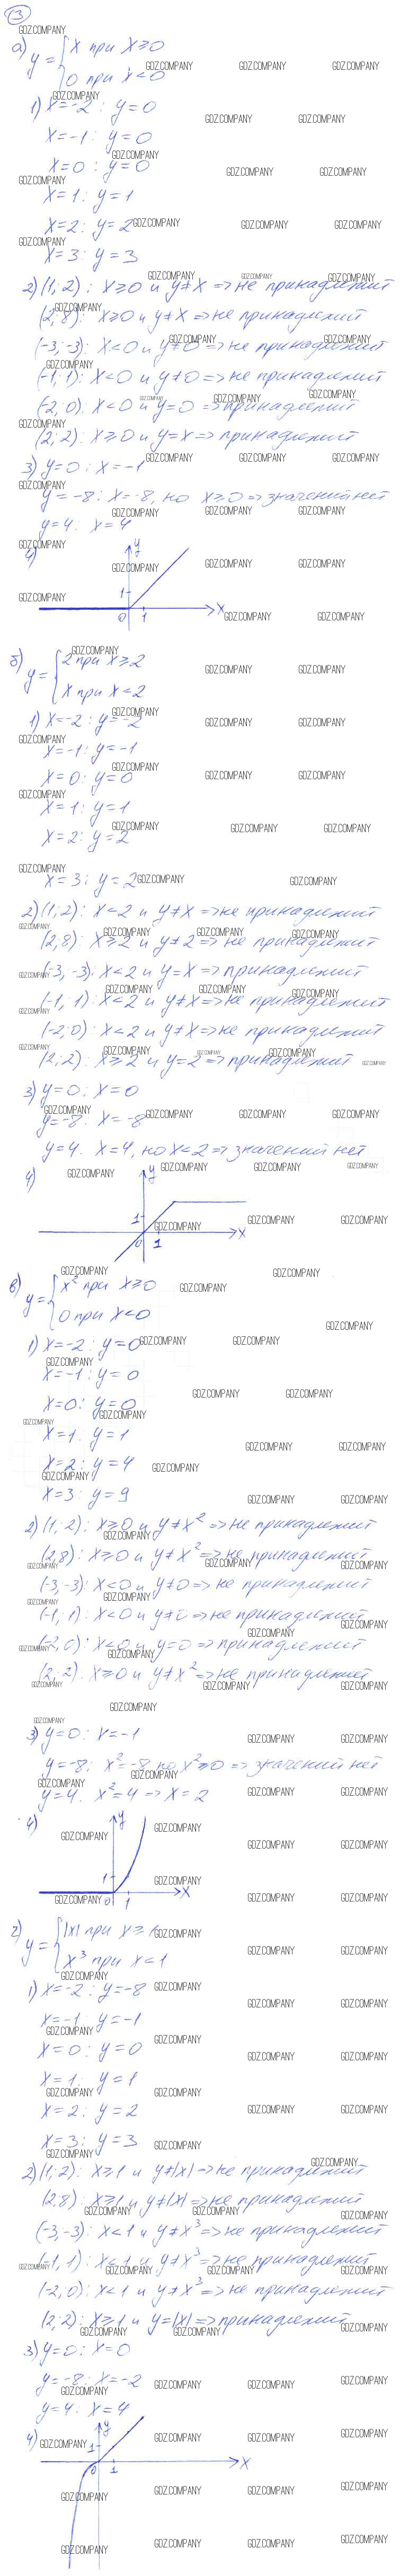 13
а) y = { x при x ≥ 0
0 при x < 0
1) x = -2 : y = 0
x = -1 : y = 0
x = 0 : y = 0
x = 1 : y = 1
x = 2 : y = 2
x = 3 : y = 3
2) (1; 2) : x ≥ 0 и y ≠ x => не принадлежит
(2; 8) : x ≥ 0 и y ≠ x => не принадлежит
(-3; -3) : x < 0 и y ≠ 0 => не принадлежит
(-1; 1) : x < 0 и y ≠ 0 => не принадлежит
(-2; 0) : x < 0 и y = 0 => принадлежит
(2; 2) : x ≥ 0 и y = x => принадлежит
3) y = 0 : x = -1
y = -8 : x = -8, но x ≥ 0 => значений нет
y = 4 : x = 4
4) y 1 0 1 x
б) y = { 2 при x ≥ 2
x при x < 2
1) x = -2 : y = -2
x = -1 : y = -1
x = 0 : y = 0
x = 1 : y = 1
x = 2 : y = 2
x = 3 : y = 2
2) (1; 2) : x < 2 и y ≠ x => не принадлежит
(2, 8) : x ≥ 2 и y ≠ 2 => не принадлежит
(-3, -3) : x < 2 и y = x => принадлежит
(-1, 1) : x < 2 и y ≠ x => не принадлежит
(-2; 0) : x < 2 и y ≠ x => не принадлежит
(2; 2) : x ≥ 2 и y = 2 => принадлежит
3) y = 0 : x = 0
y = -8 : x = -8
y = 4 : x = 4, но x < 2 => значений нет
4) y 1 0 1 x
в) y = { x² при x ≥ 0
0 при x < 0
1) x = -2 : y = 0
x = -1 : y = 0
x = 0 : y = 0
x = 1 : y = 1
x = 2 : y = 4
x = 3 : y = 9
2) (1; 2) : x ≥ 0 и y ≠ x² => не принадлежит
(2, 8) : x ≥ 0 и y ≠ x² => не принадлежит
(-3; -3) : x < 0 и y ≠ 0 => не принадлежит
(-1, 1) : x < 0 и y ≠ 0 => не принадлежит
(-2, 0) : x < 0 и y = 0 => принадлежит
(2; 2) : x ≥ 0 и y ≠ x² => не принадлежит
3) y = 0 : x = -1
y = -8 : x² = -8 но x² ≥ 0 => значений нет
y = 4 : x² = 4 => x = 2
4) y 1 0 1 x
г) y = { |x| при x ≥ 1
x³ при x < 1
1) x = -2 : y = -8
x = -1 : y = -1
x = 0 : y = 0
x = 1 : y = 1
x = 2 : y = 2
x = 3 : y = 3
2) (1; 2) : x ≥ 1 и y ≠ |x| => не принадлежит
(2, 8) : x ≥ 1 и y ≠ |x| => не принадлежит
(-3; -3) : x < 1 и y ≠ x³ => не принадлежит
(-1, 1) : x < 1 и y ≠ x³ => не принадлежит
(-2, 0) : x < 1 и y ≠ x³ => не принадлежит
(2; 2) : x ≥ 1 и y = |x| => принадлежит
3) y = 0 : x = 0
y = -8 : x = -2
y = 4 : x = 4
4) y 1 0 1 x
GDZ.COMPANY